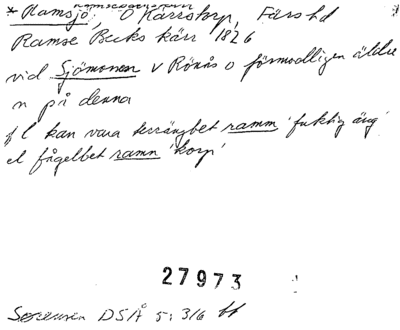 * Ramsjö, Ö Kärrstorp, Färs hd
Ramse Becks kärr 1826
vid Sjömossen v Rönås o förmodligen äldre
n på denna
f l kan vara terrängbet ramm 'fuktig äng'
el fågelbet ramn 'korp'
27973
Sörensen DSÅ 5: 316